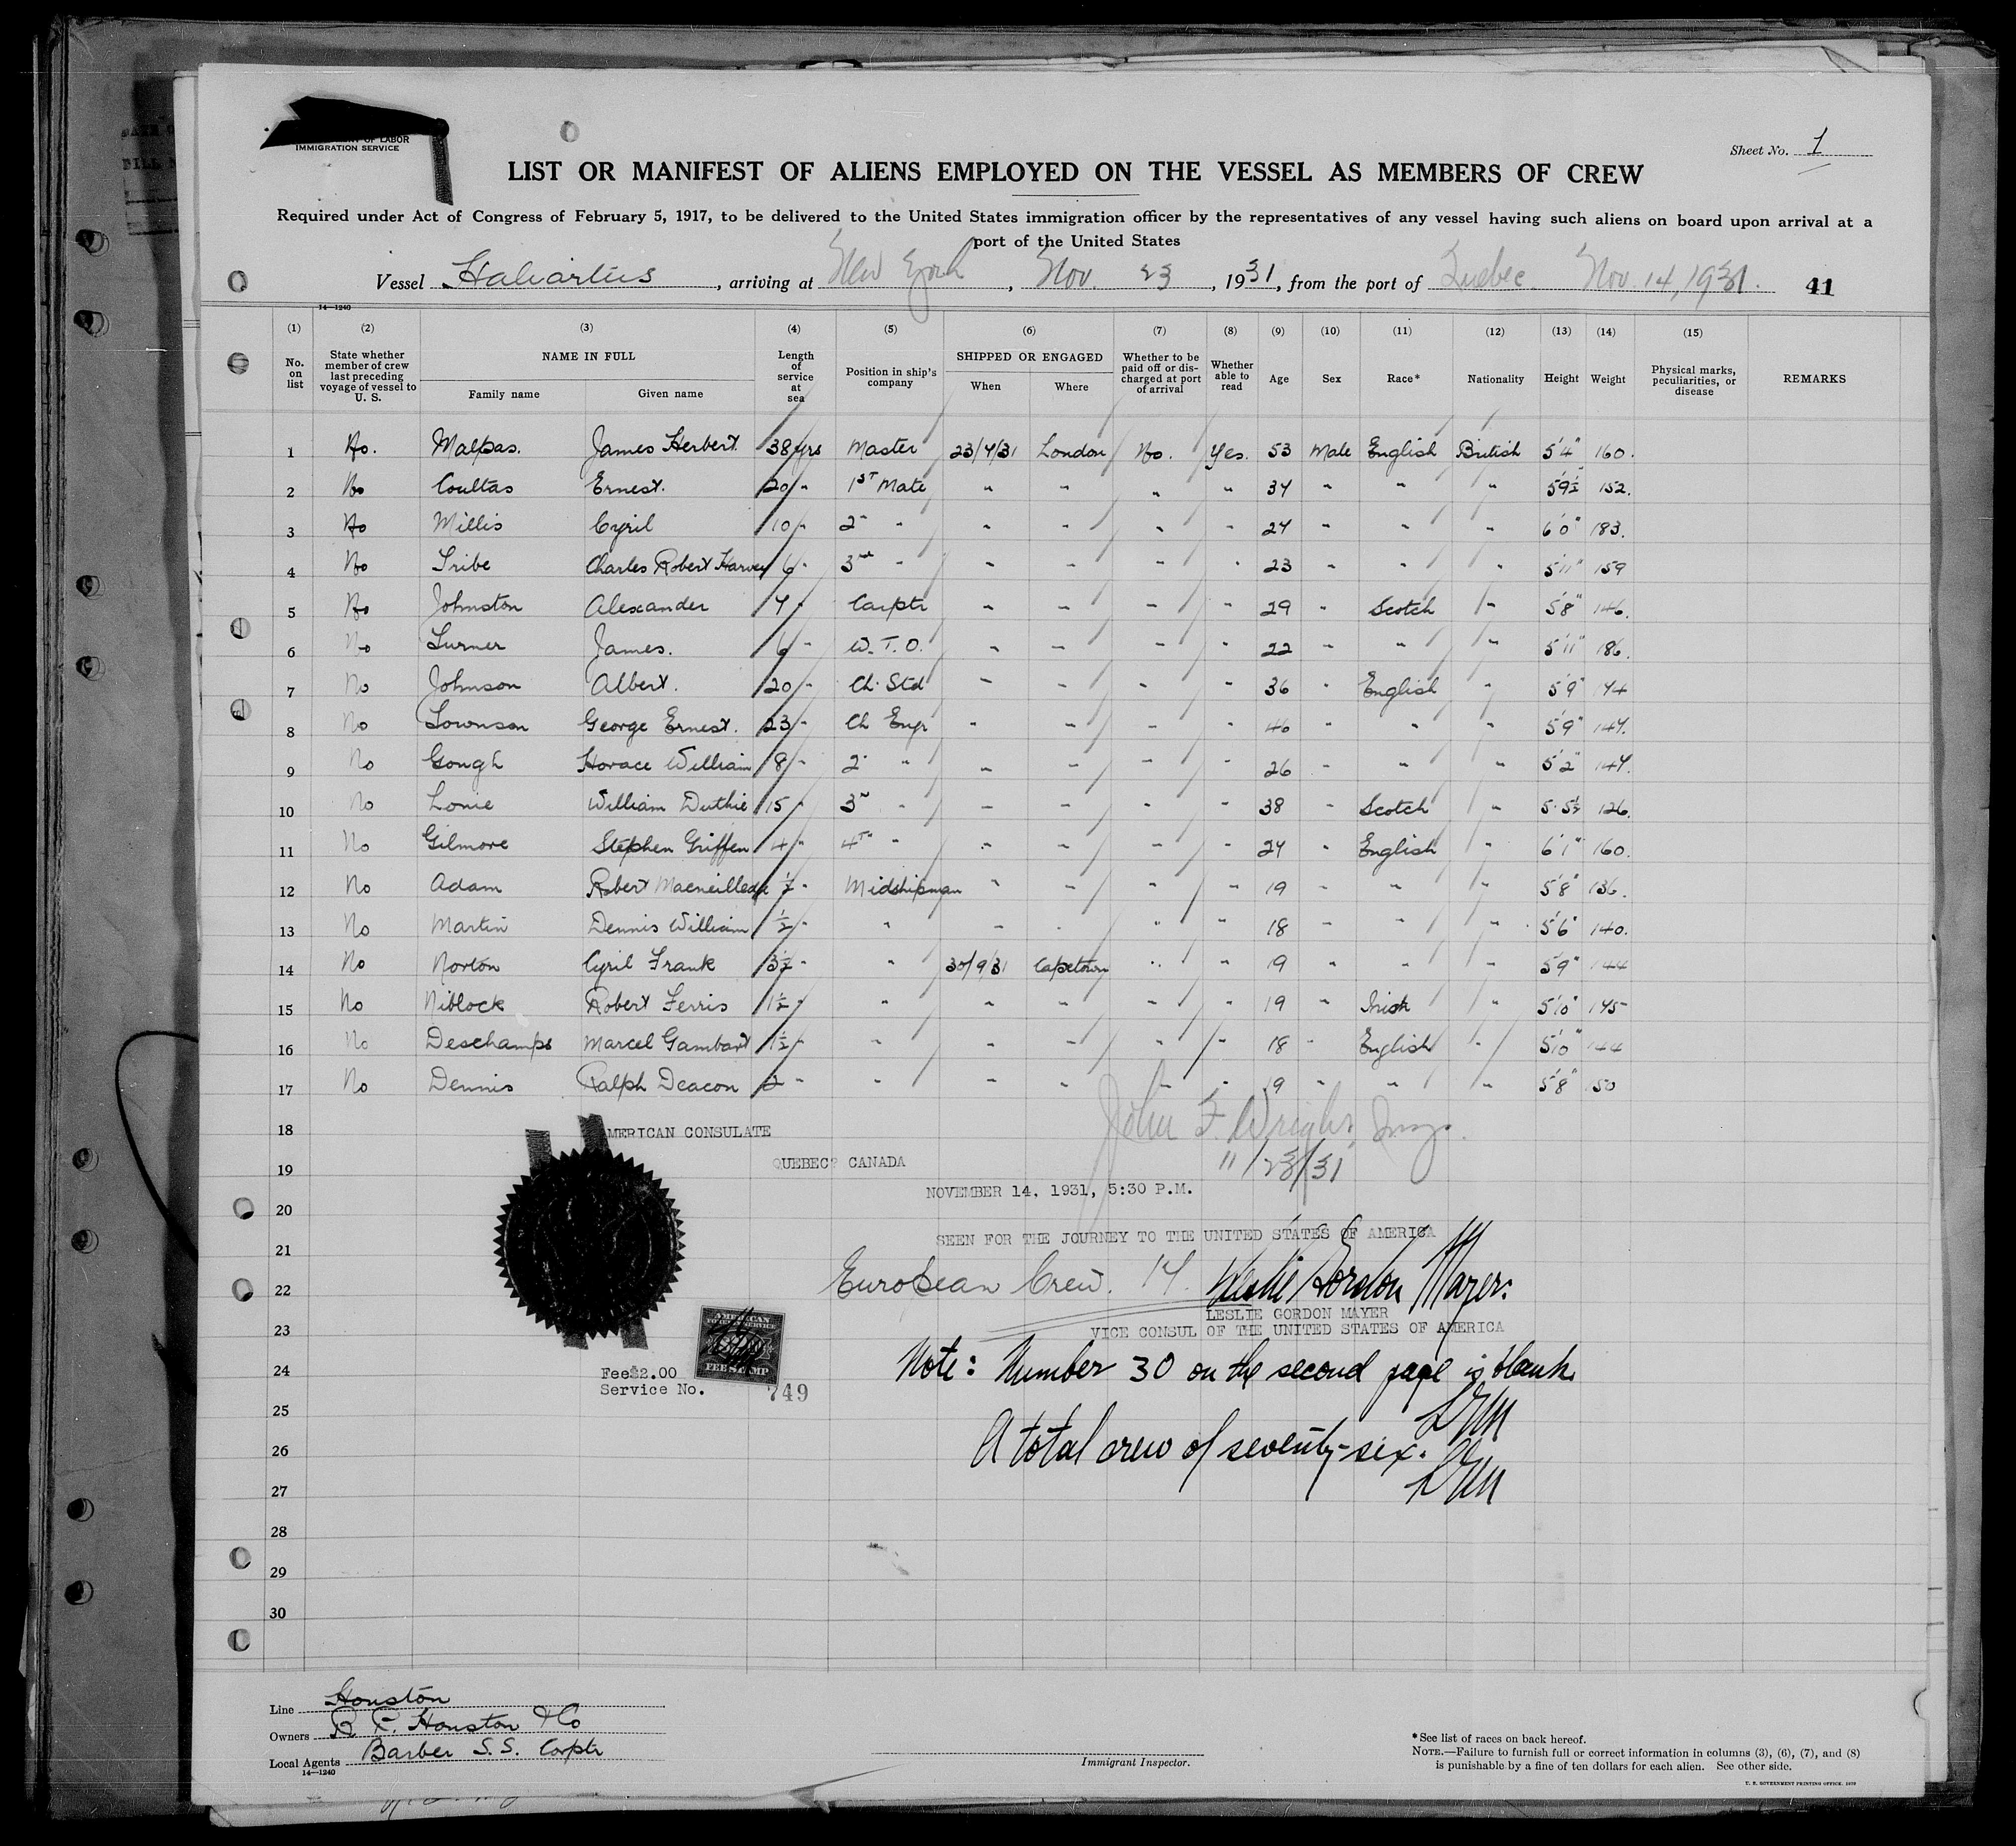 OF LABOR
IMMIGRATION SERVICE
Sheet No. 1
LIST OR MANIFEST OF ALIENS EMPLOYED ON THE VESSEL AS MEMBERS OF CREW
Required under Act of Congress of February 5, 1917, to be delivered to the United States immigration officer by the representatives of any vessel having such aliens on board upon arrival at a
port of the United States
Vessel Haliartus, arriving at New York, Nov. 23, 1931, from the port of Quebec Nov. 14, 1931. 41
14—1240
(1) (2) (3) (4) (5) (6) (7) (8) (9) (10) (11) (12) (13) (14) (15)
No. on list State whether member of crew last preceding voyage of vessel to U. S. NAME IN FULL Family name Given name Length of service at sea Position in ship's company SHIPPED OR ENGAGED When Where Whether to be paid off or discharged at port of arrival Whether able to read Age Sex Race* Nationality Height Weight Physical marks, peculiarities, or disease REMARKS
1 No. Malpas. James Herbert. 38 yrs Master 23/7/31 London No. Yes. 53 Male English British 5'4" 160.
2 No Coultas Ernest. 20 " 1ST Mate " " " " 34 " " " 5'9½ 152.
3 No Millis Cyril 10 " 2" " " " " " 24 " " " 6'0" 183.
4 No Tribe Charles Robert Harvey 6 " 3rd " " " " " 23 " " " 5'11" 159
5 No Johnston Alexander 7 " Carptr " " " " 29 " Scotch " 5'8" 146.
6 No Turner James. 6 " W. T. O. " " " " 22 " " " 5'11" 186.
7 No Johnson Albert. 20 " Ch. Std " " " " 36 " English " 5'9" 174
8 No Townson George Ernest. 23 " Ch Engr " " " " 46 " " " 5'9" 147.
9 No Gough Horace William 8 " 2" " " " " " 26 " " " 5'2" 147.
10 No Lonie William Duthie 15 " 3rd " " " " " 38 " Scotch " 5'5½ 126.
11 No Gilmore Stephen Griffen 4 " 4TH " " " " " 24 " English " 6'1" 160.
12 No Adam Robert Macneilledge ½ " Midshipman " " " " 19 " " " 5'8" 136.
13 No Martin Dennis William ½ " " " " " " 18 " " " 5'6" 140.
14 No Norton Cyril Frank 3½ " " 30/9/31 Capetown " " 19 " " " 5'9" 144
15 No Niblock Robert Ferris 1½ " " " " " " 19 " Irish " 5'10" 145
16 No Deschamps Marcel Gambart 1½ " " " " " " 18 " English " 5'10" 144
17 No Dennis Ralph Deacon 2 " " " " " " 19 " " " 5'8" 150
John F. Wright, Insp.
18 AMERICAN CONSULATE
19 QUEBEC, CANADA 11/23/31
NOVEMBER 14, 1931, 5:30 P.M.
20
SEEN FOR THE JOURNEY TO THE UNITED STATES OF AMERICA
21
22 European Crew. 17. Leslie Gordon Mayer.
LESLIE GORDON MAYER
23 VICE CONSUL OF THE UNITED STATES OF AMERICA
AMERICAN
FEE STAMP
24 Note: Number 30 on the second page is blank.
Fee$2.00
Service No. 749
LGM
25
26 A total crew of seventy-six.
LGM
27
28
29
30
Line Houston
Owners R. P. Houston & Co
Local Agents Barber S.S. Corptn
14—1240
Immigrant Inspector.
*See list of races on back hereof.
NOTE.—Failure to furnish full or correct information in columns (3), (6), (7), and (8)
is punishable by a fine of ten dollars for each alien. See other side.
U. S. GOVERNMENT PRINTING OFFICE: 1929